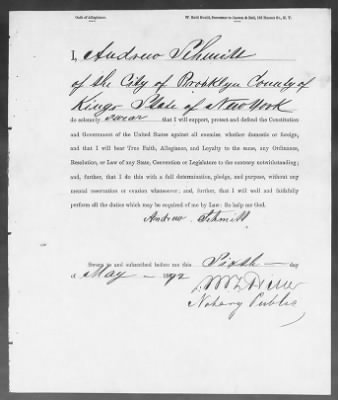 Oath of Allegiance.
I, Andrew Schmitt
of the City of Brooklyn County of
Kings State of New York
do solemnly swear that I will support, protect and defend the Constitution
and Government of the United States against all enemies whether domestic or foreign,
and that I will bear True Faith, Allegiance, and Loyalty to the same, any Ordinance,
Resolution, or Law of any State, Convention or Legislature to the contrary notwithstanding;
and, further, that I do this with a full determination, pledge, and purpose, without any
mental reservation or evasion whatsoever; and, further, that I will well and faithfully
perform all the duties which may be required of me by Law: So help me God.
Andrew Schmitt
Sworn to and subscribed before me this Sixth day
of May 1892
Notary Public